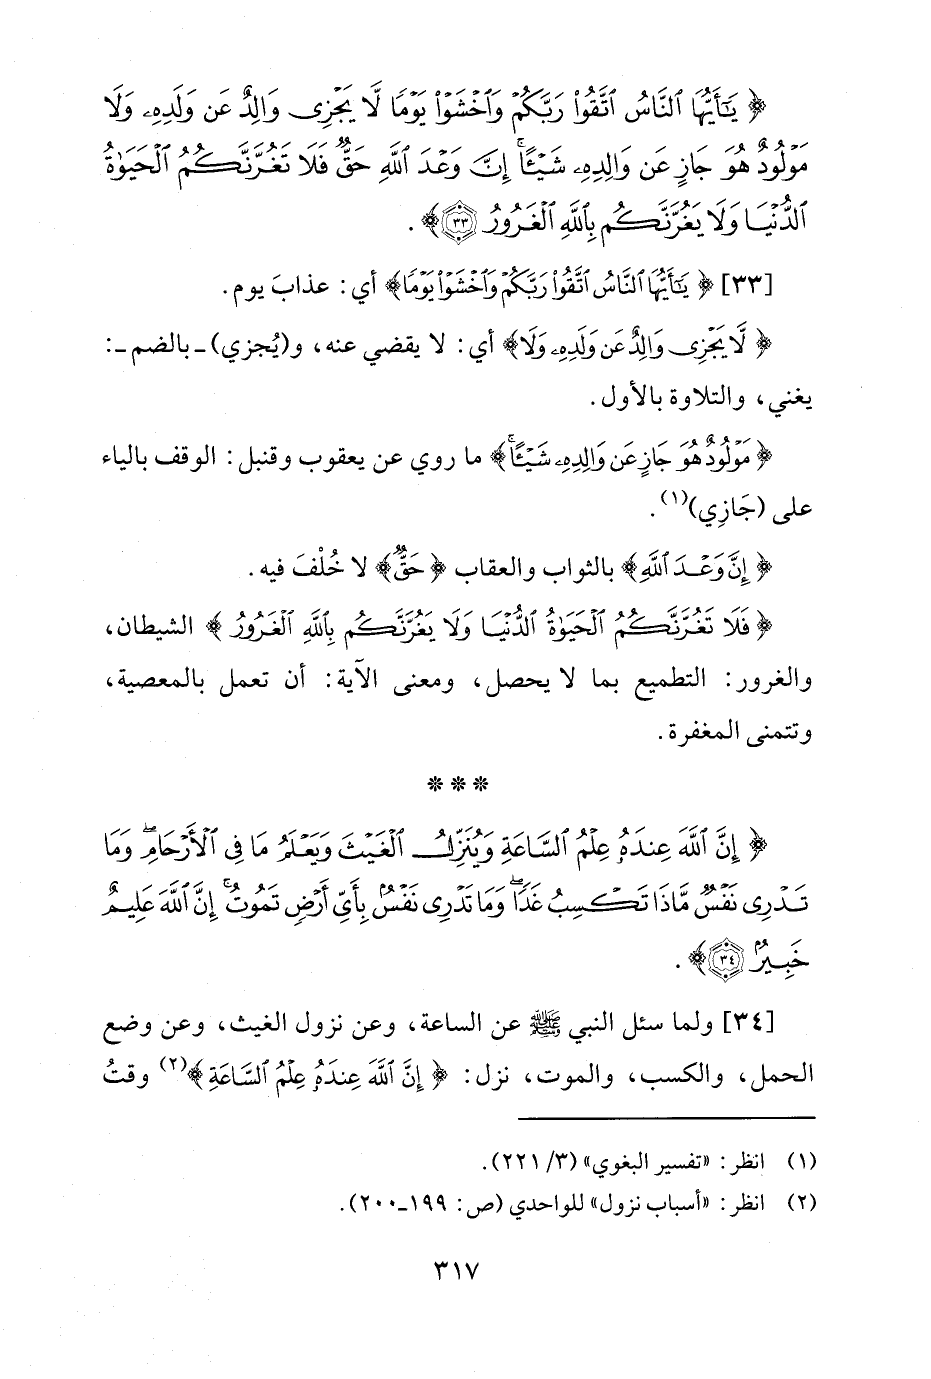 ﴿ يَٰٓأَيُّهَا ٱلنَّاسُ ٱتَّقُوا۟ رَبَّكُمْ وَٱخْشَوْا۟ يَوْمًا لَّا يَجْزِى وَالِدٌ عَن وَلَدِهِۦ وَلَا
مَوْلُودٌ هُوَ جَازٍ عَن وَالِدِهِۦ شَيْـًٔا ۚ إِنَّ وَعْدَ ٱللَّهِ حَقٌّ ۖ فَلَا تَغُرَّنَّكُمُ ٱلْحَيَوٰةُ
ٱلدُّنْيَا وَلَا يَغُرَّنَّكُم بِٱللَّهِ ٱلْغَرُورُ ٣٣﴾ .
[٣٣] ﴿ يَٰٓأَيُّهَا ٱلنَّاسُ ٱتَّقُوا۟ رَبَّكُمْ وَٱخْشَوْا۟ يَوْمًا﴾ أي: عذابَ يوم.
﴿ لَّا يَجْزِى وَالِدٌ عَن وَلَدِهِۦ وَلَا﴾ أي: لا يقضي عنه، و(يُجزي) ـ بالضم ـ:
يغني، والتلاوة بالأول.
﴿ مَوْلُودٌ هُوَ جَازٍ عَن وَالِدِهِۦ شَيْـًٔا ۚ﴾ ما روي عن يعقوب وقنبل: الوقف بالياء
على (جَازِي)(١).
﴿ إِنَّ وَعْدَ ٱللَّهِ﴾ بالثواب والعقاب ﴿ حَقٌّ ۖ﴾ لا خُلْفَ فيه.
﴿ فَلَا تَغُرَّنَّكُمُ ٱلْحَيَوٰةُ ٱلدُّنْيَا وَلَا يَغُرَّنَّكُم بِٱللَّهِ ٱلْغَرُورُ ﴾ الشيطان،
والغرور: التطميع بما لا يحصل، ومعنى الآية: أن تعمل بالمعصية،
وتتمنى المغفرة.
* * *
﴿ إِنَّ ٱللَّهَ عِندَهُۥ عِلْمُ ٱلسَّاعَةِ وَيُنَزِّلُ ٱلْغَيْثَ وَيَعْلَمُ مَا فِى ٱلْأَرْحَامِ ۖ وَمَا
تَدْرِى نَفْسٌ مَّاذَا تَكْسِبُ غَدًا ۖ وَمَا تَدْرِى نَفْسٌۢ بِأَىِّ أَرْضٍ تَمُوتُ ۚ إِنَّ ٱللَّهَ عَلِيمٌ
خَبِيرٌۢ ٣٤﴾ .
[٣٤] ولما سئل النبي ﷺ عن الساعة، وعن نزول الغيث، وعن وضع
الحمل، والكسب، والموت، نزل: ﴿ إِنَّ ٱللَّهَ عِندَهُۥ عِلْمُ ٱلسَّاعَةِ﴾(٢) وقتُ
(١) انظر: «تفسير البغوي» (٣/ ٢٢١).
(٢) انظر: «أسباب نزول» للواحدي (ص: ١٩٩ـ٢٠٠).
٣١٧